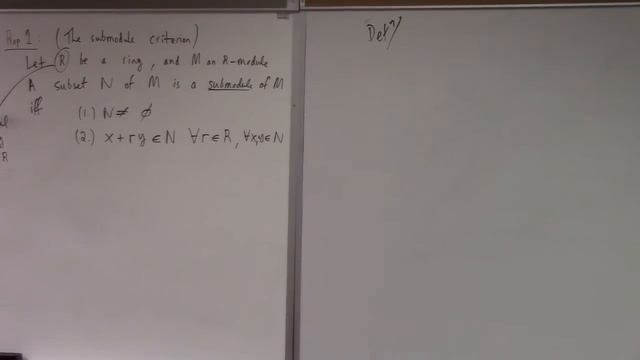 Prop 1: (The submodule criterion)
Let R be a ring, and M an R-module
A subset N of M is a submodule of M
iff
(1.) N ≠ ∅
(2.) x + ry ∈ N ∀r ∈ R, ∀x,y ∈ N
R
Def'n